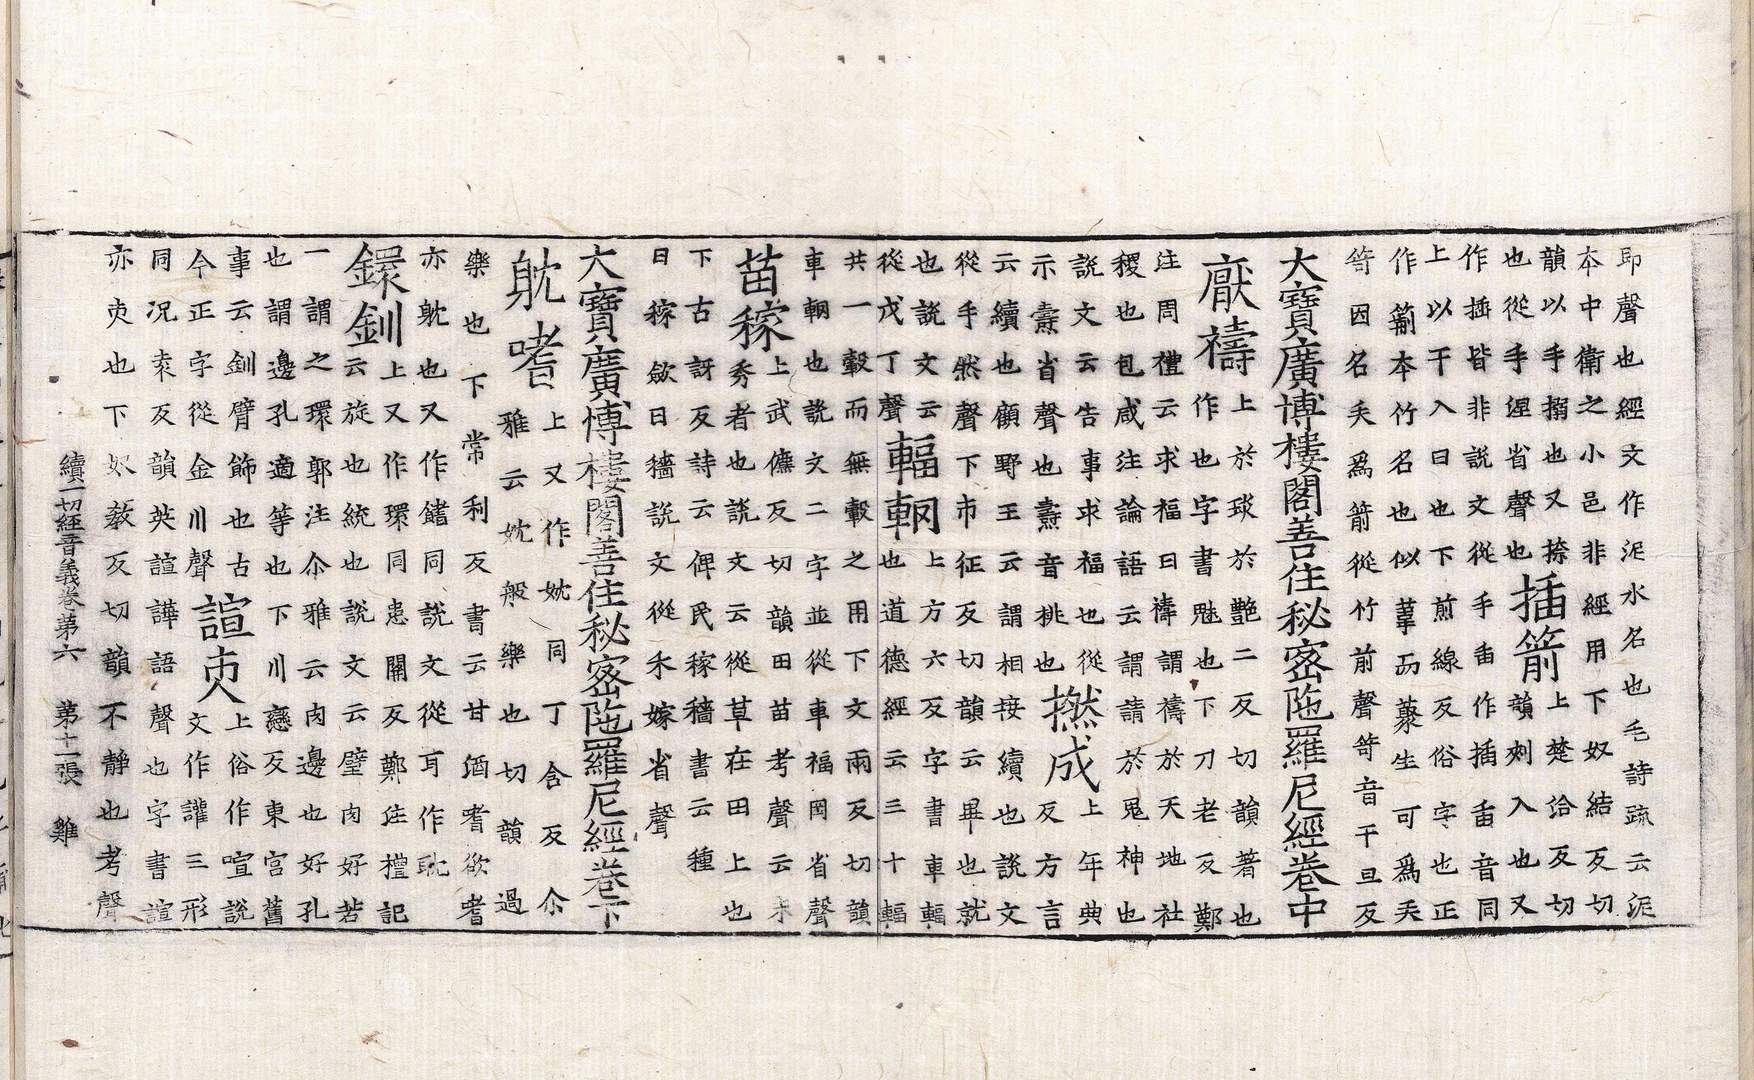 即聲也經文作泥水名也毛詩疏云泥
本中衛之小邑非經用下奴結反切
韻以手搦也又捺
也從手涅省聲也
插箭
上楚洽反切
韻刾入也又
作揷皆非說文從手臿作插臿音同
上以干入臼也下煎線反俗字也正
作葥本竹名也似葦而藂生可爲矢
笴因名矢爲箭從竹前聲笴音干旦反
大寶廣博樓閣善住秘密陁羅尼經卷中
厭禱
上於琰於艷二反切韻著也
作也字書魅也下刀老反鄭
注周禮云求福曰禱謂禱於天地社
稷也包咸注論語云謂請於鬼神也
說文云告事求福也從
示壽省聲也壽音桃也
撚成
上年典
反方言
云續也顧野王云謂相接續也說文
從手然聲下市征反切韻云畢也就
也說文云
從戊丁聲
輻輞
上方六反字書車輻
也道德經云三十輻
共一轂而無轂之用下文兩反切韻
車輞也說文二字並從車福岡省聲
苗稼
上武儦反切韻田苗考聲云未
秀者也說文云從草在田上也
下古訝反詩云俾民稼穡書云種
曰稼斂曰穡說文從禾嫁省聲
大寶廣博樓閣善住秘密陁羅尼經卷下
躭嗜
上又作妉同丁含反尒
雅云妉般樂也切韻過
樂也下常利反書云甘酒耆欲嗜
亦躭也又作饍同說文從耳作耽
鐶釧
上又作環同患關反鄭注禮記
云旋也統也說文云璧肉好若
一謂之環郭注尒雅云肉邊也好孔
也謂邊孔適等也下川戀反東宮舊
事云釧臂飾也古
今正字從金川聲
諠
上俗作喧說
文作讙三形
同況袁反韻英諠譁語聲也字書諠
亦也下奴敎反切韻不靜也考聲
續一切經音義卷第六 第十一張 雞